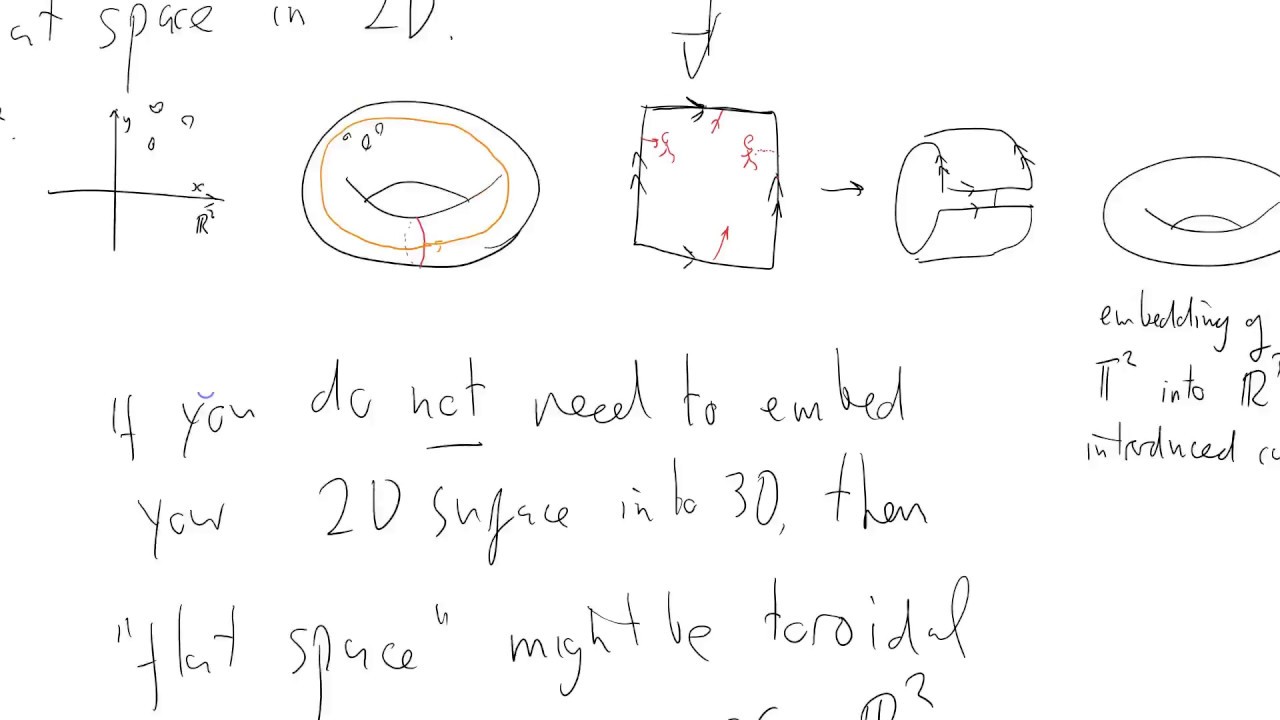 at space in 2D.
y
x
ℝ²
embedding of
𝕋² into ℝ³
introduced
If you do not need to embed
your 2D surface into 3D, then
"flat space" might be toroidal
ℝ²